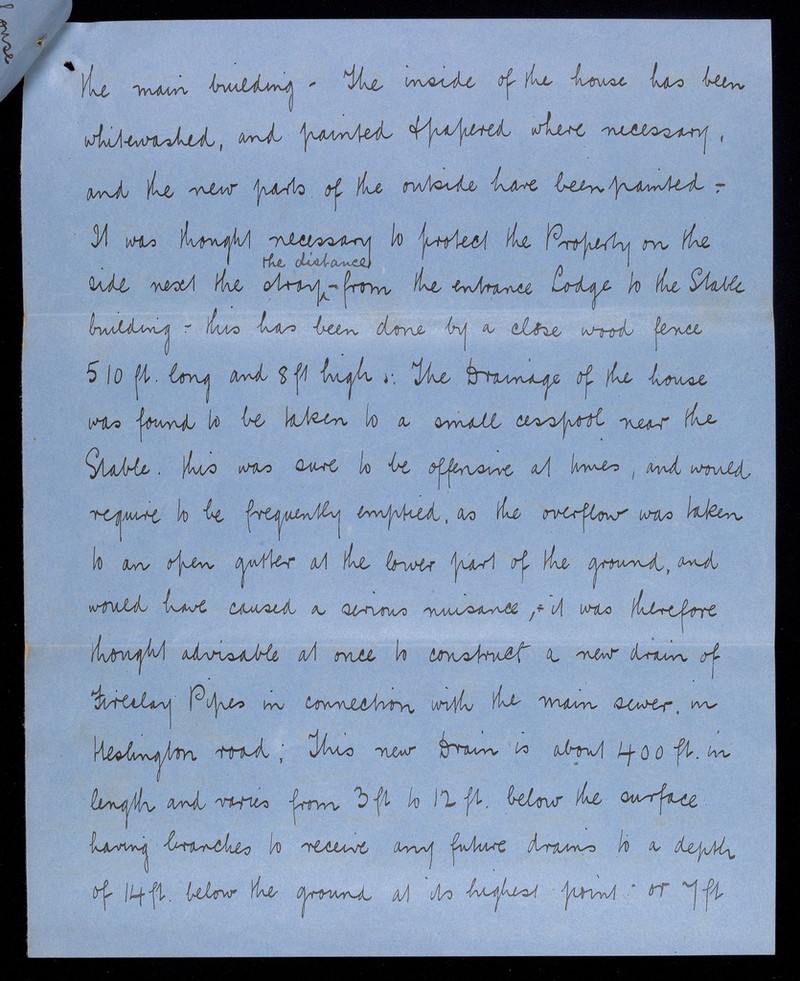 ouse
the main building - The inside of the house has been
whitewashed, and painted & papered where necessary,
and the new parts of the outside have been painted -
It was thought necessary to protect the Property on the
the distance
side next the stray - from the entrance Lodge to the Stable
building - this has been done by a close wood fence
510 ft. long and 8 ft high :. The Drainage of the house
was found to be taken to a small cesspool near the
Stable. this was sure to be offensive at times, and would
require to be frequently emptied, as the overflow was taken
to an open gutter at the lower part of the ground, and
would have caused a serious nuisance, - it was therefore
thought advisable at once to construct a new drain of
Fireclay Pipes in connection with the main sewer. in
Heslington road; This new Drain is about 400 ft. in
length and varies from 3 ft to 12 ft. below the surface
having branches to receive any future drains to a depth
of 14 ft. below the ground at its highest point - or 7 ft